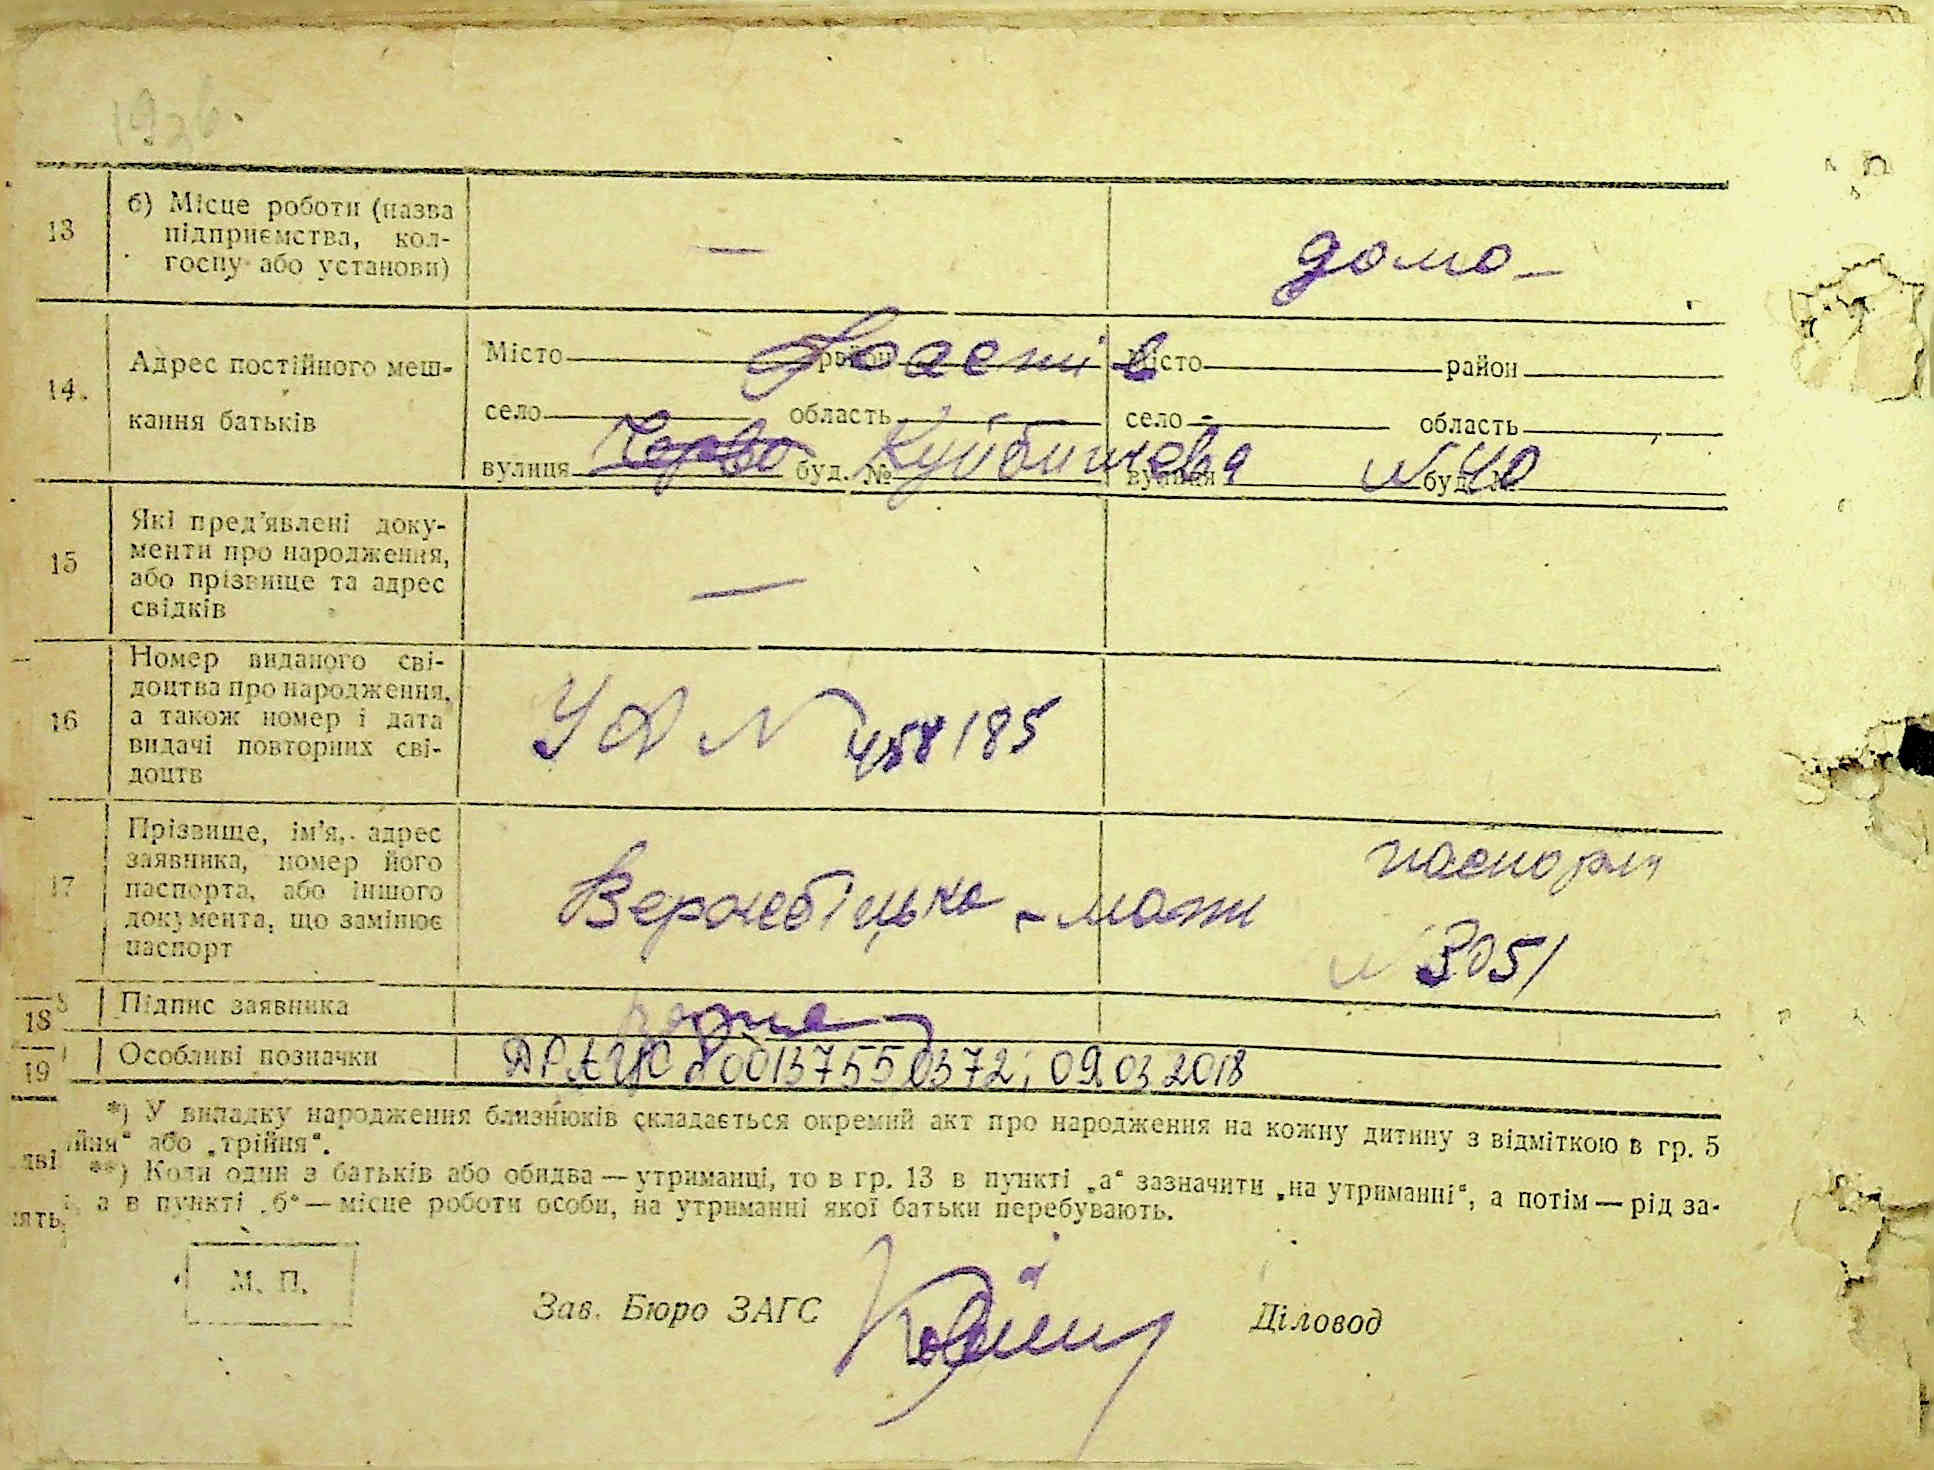 13
б) Місце роботи (назва
підприємства, кол-
госпу або установи)
—
домо-
14.
Адрес постійного меш-
кання батьків
Місто район Місто район
Фастів
село область село область
вулиця буд. № вулиця буд. №
Черво Куйбишева №40
15
Які пред'явлені доку-
менти про народження,
або прізвище та адрес
свідків
—
16
Номер виданого сві-
доцтва про народження,
а також номер і дата
видачі повторних сві-
доцтв
№ 458185
17
Прізвище, ім'я, адрес
заявника, номер його
паспорта, або іншого
документа, що замінює
паспорт
Вержебіцька - мати
паспорт
№ 3051
18
Підпис заявника
19
Особливі позначки
ДРАЦС 00137550372; 09.03.2018
*) У випадку народження близнюків складається окремий акт про народження на кожну дитину з відміткою в гр. 5
„трійня“ або „трійня“.
**) Коли один з батьків або обидва — утриманці, то в гр. 13 в пункті „а“ зазначити „на утриманні“, а потім — рід за-
а в пункті „б“ — місце роботи особи, на утриманні якої батьки перебувають.
М. П.
Зав. Бюро ЗАГС
Діловод